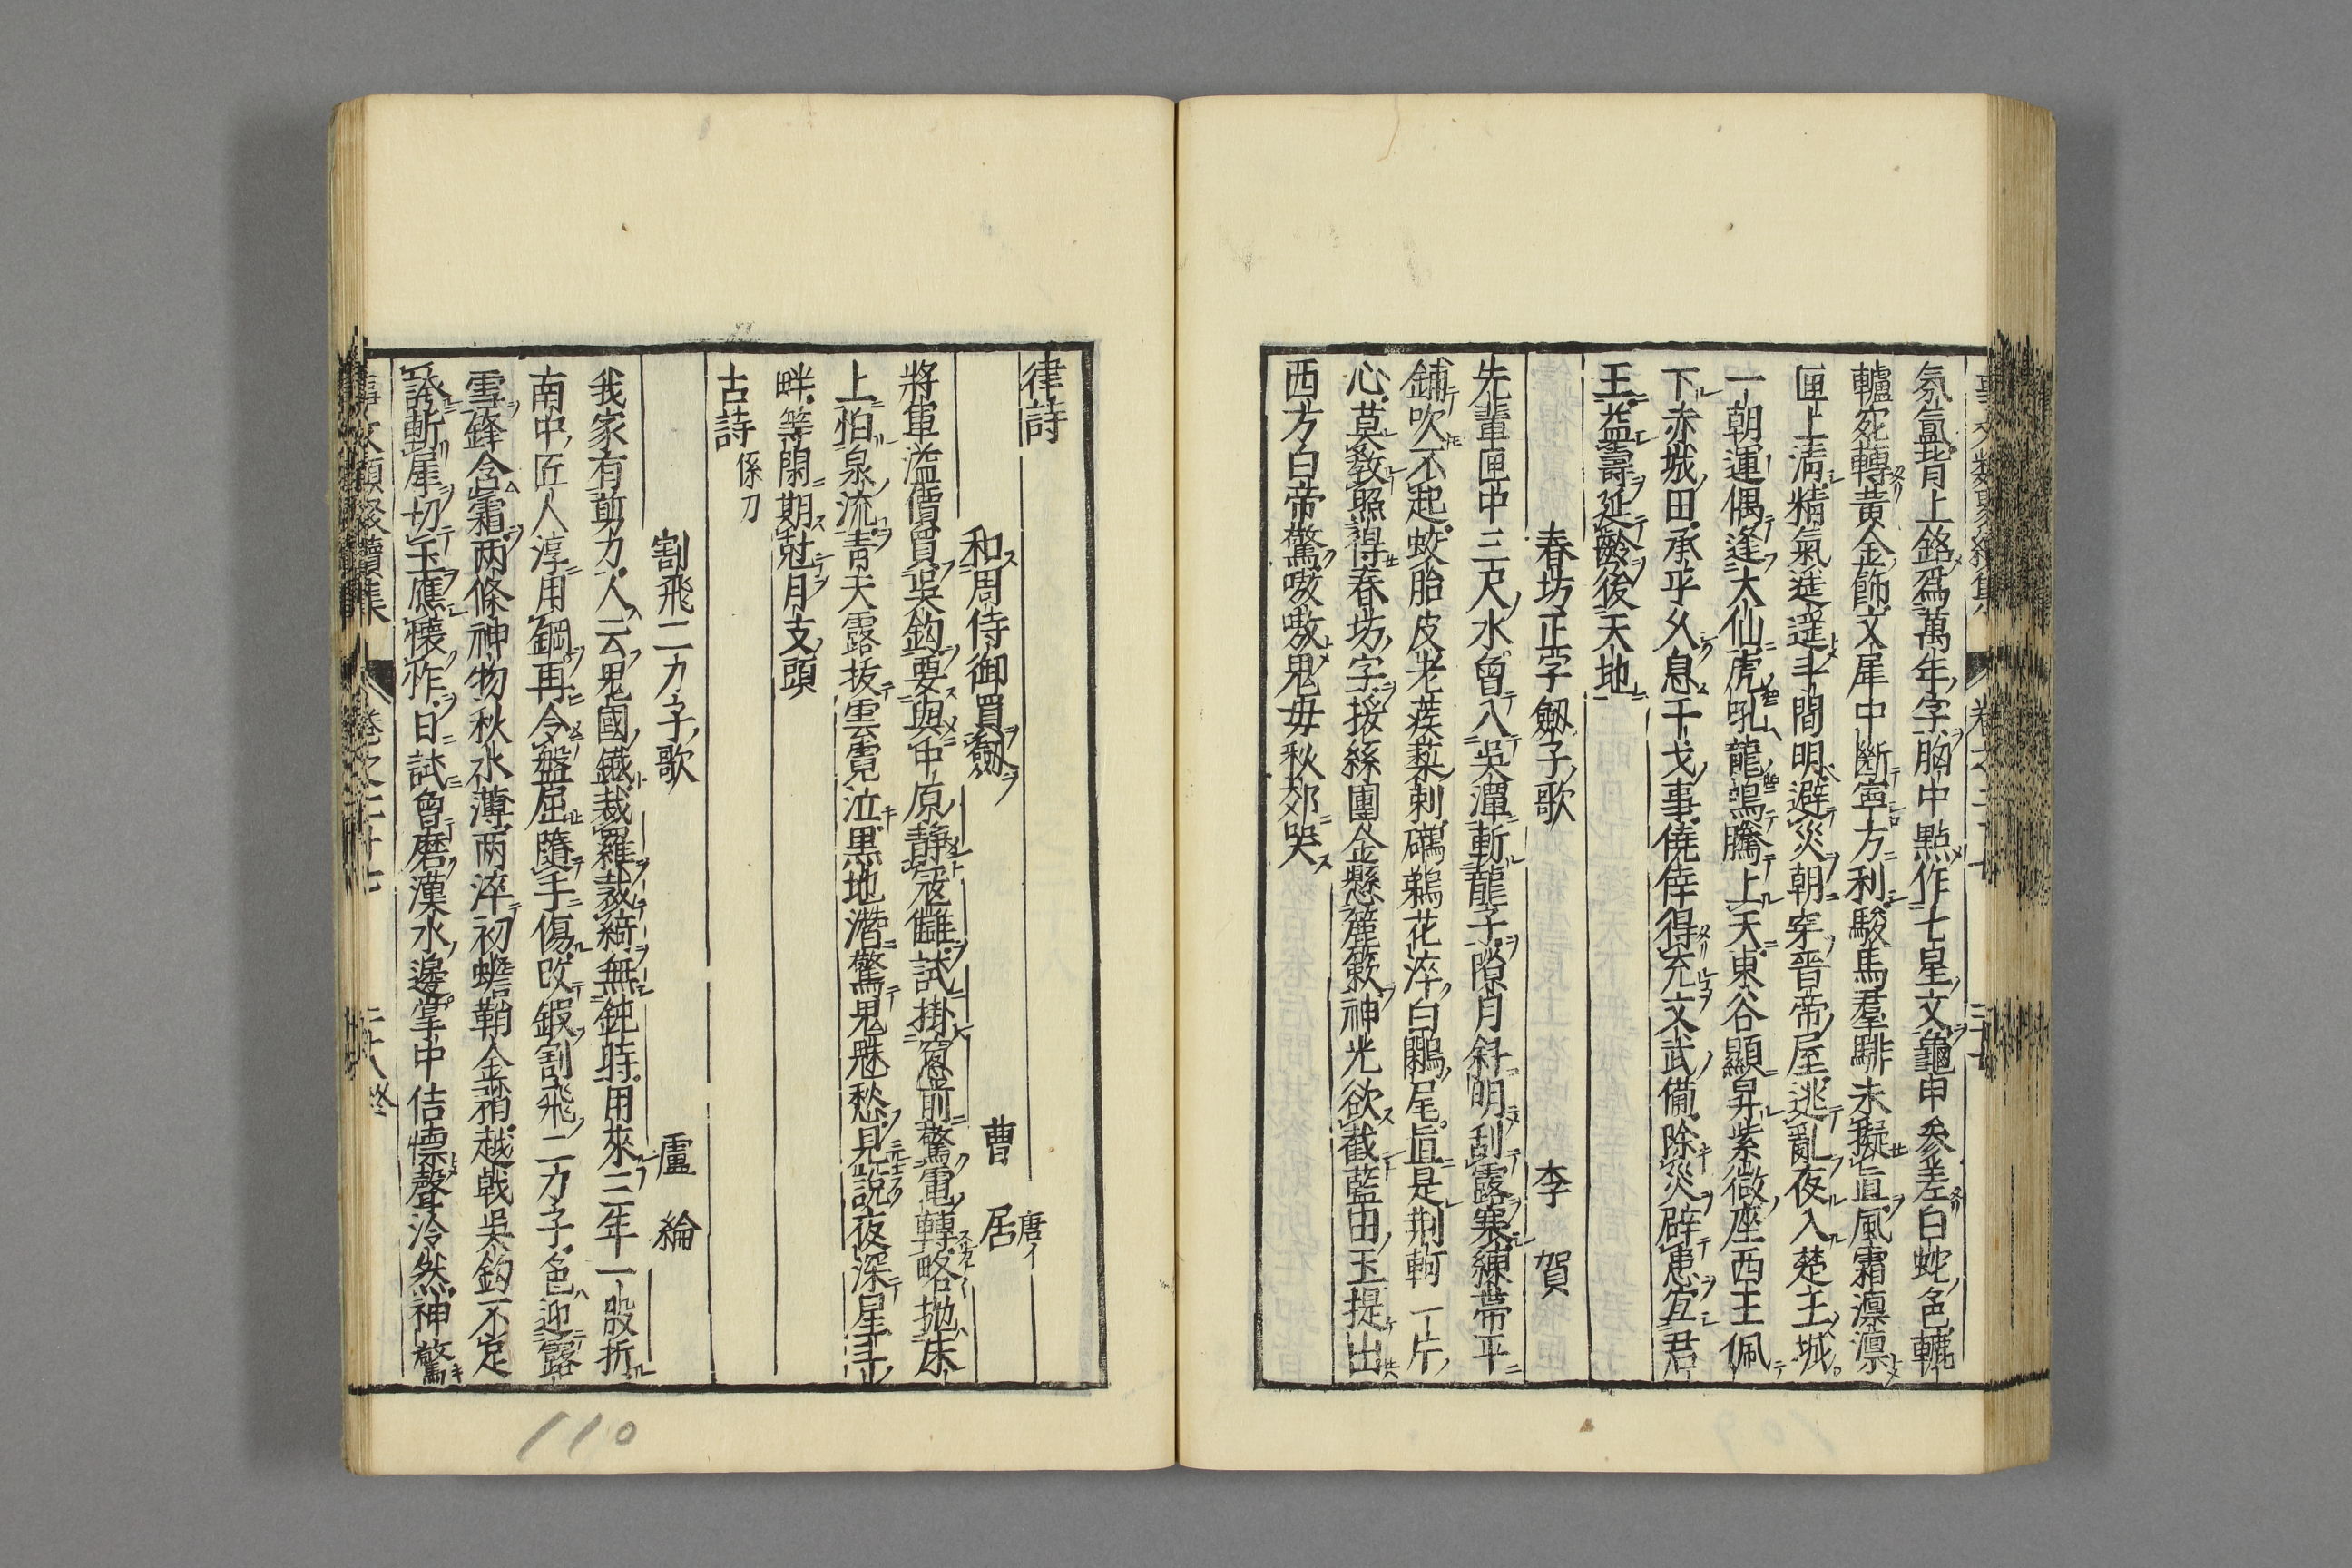 氛氳背上銘爲萬年字胸中點作七星文龜甲參差白蛇色轆
轤宛轉黄金飾文犀中斷寧方利駿馬羣騑未擬直風霜凛凛
匣上清精氣遥遥斗間明避災朝穿晋帝屋逃亂夜入楚王城
一朝運偶逢大仙虎吼龍鳴騰上天東谷顯昇紫微座西王佩
下赤城田承平久息干戈事僥倖得充文武備除災辟患宜君
王益壽延齡後天地
春坊正字劒子歌　李賀
先輩匣中三尺水曾入吳潭斬龍子隙月斜明刮露寒練帶平
鋪吹不起蛟胎皮老蒺蔾刺鷿鵜花淬白鷴尾直是荆軻一片
心莫敎照得春坊字挼絲團金懸簏簌神光欲截藍田玉提出
西方白帝驚嗷嗷鬼母秋郊哭
律詩
和周侍御買劒　曹居唐イ
將軍溢價買吳鈎要與中原靜寇讎試掛窓前驚電轉略抛床
上怕泉流青天露拔雲霓泣黒地潛驚鬼魅愁見說夜深星斗
畔等閑期尅月支頭
古詩 係刀
割飛二刀子歌　盧綸
我家有剪刀人云鬼國鐵裁羅裁綺無鈍時用來三年一股折
南中匠人淳用鋼再令盤屈隨手傷改鍜割飛二刀子色迎露
雪鋒含霜两條神物秋水薄两淬初蟾鞘金稍越戟吳鈎不足
誇斬犀切玉應懐怍日試曾磨漢水邊掌中佶慓聲泠然神驚
事文類聚續集　卷之二十七　二十八終